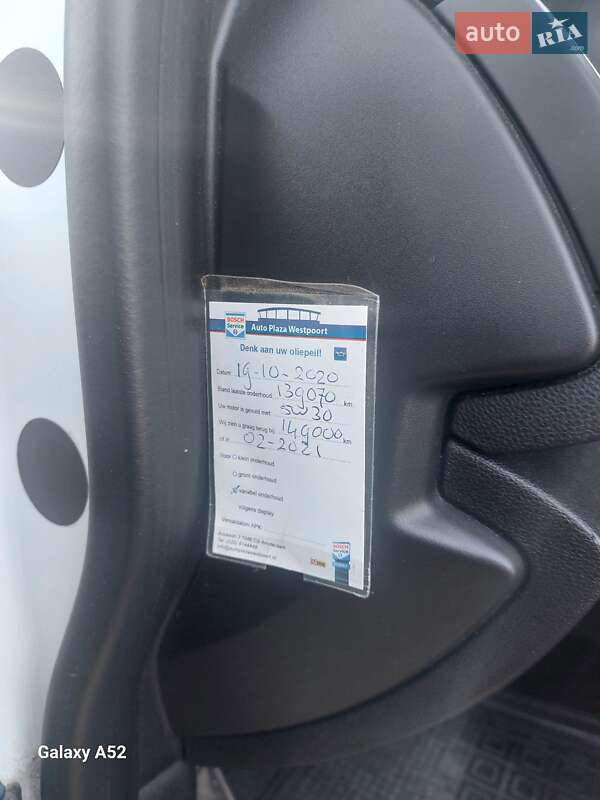 auto RIA .com
BOSCH Service
Auto Plaza Westpoort
Denk aan uw oliepeil!
Datum: 19-10-2020
Stand laatste onderhoud: 139070 km
Uw motor is gevuld met: 5W30
Wij zien u graag terug bij: 149000 km
of in 02-2021
Voor klein onderhoud
groot onderhoud
variabel onderhoud
volgens display
Vervaldatum APK:
Amsterdam
BOSCH Service
Galaxy A52